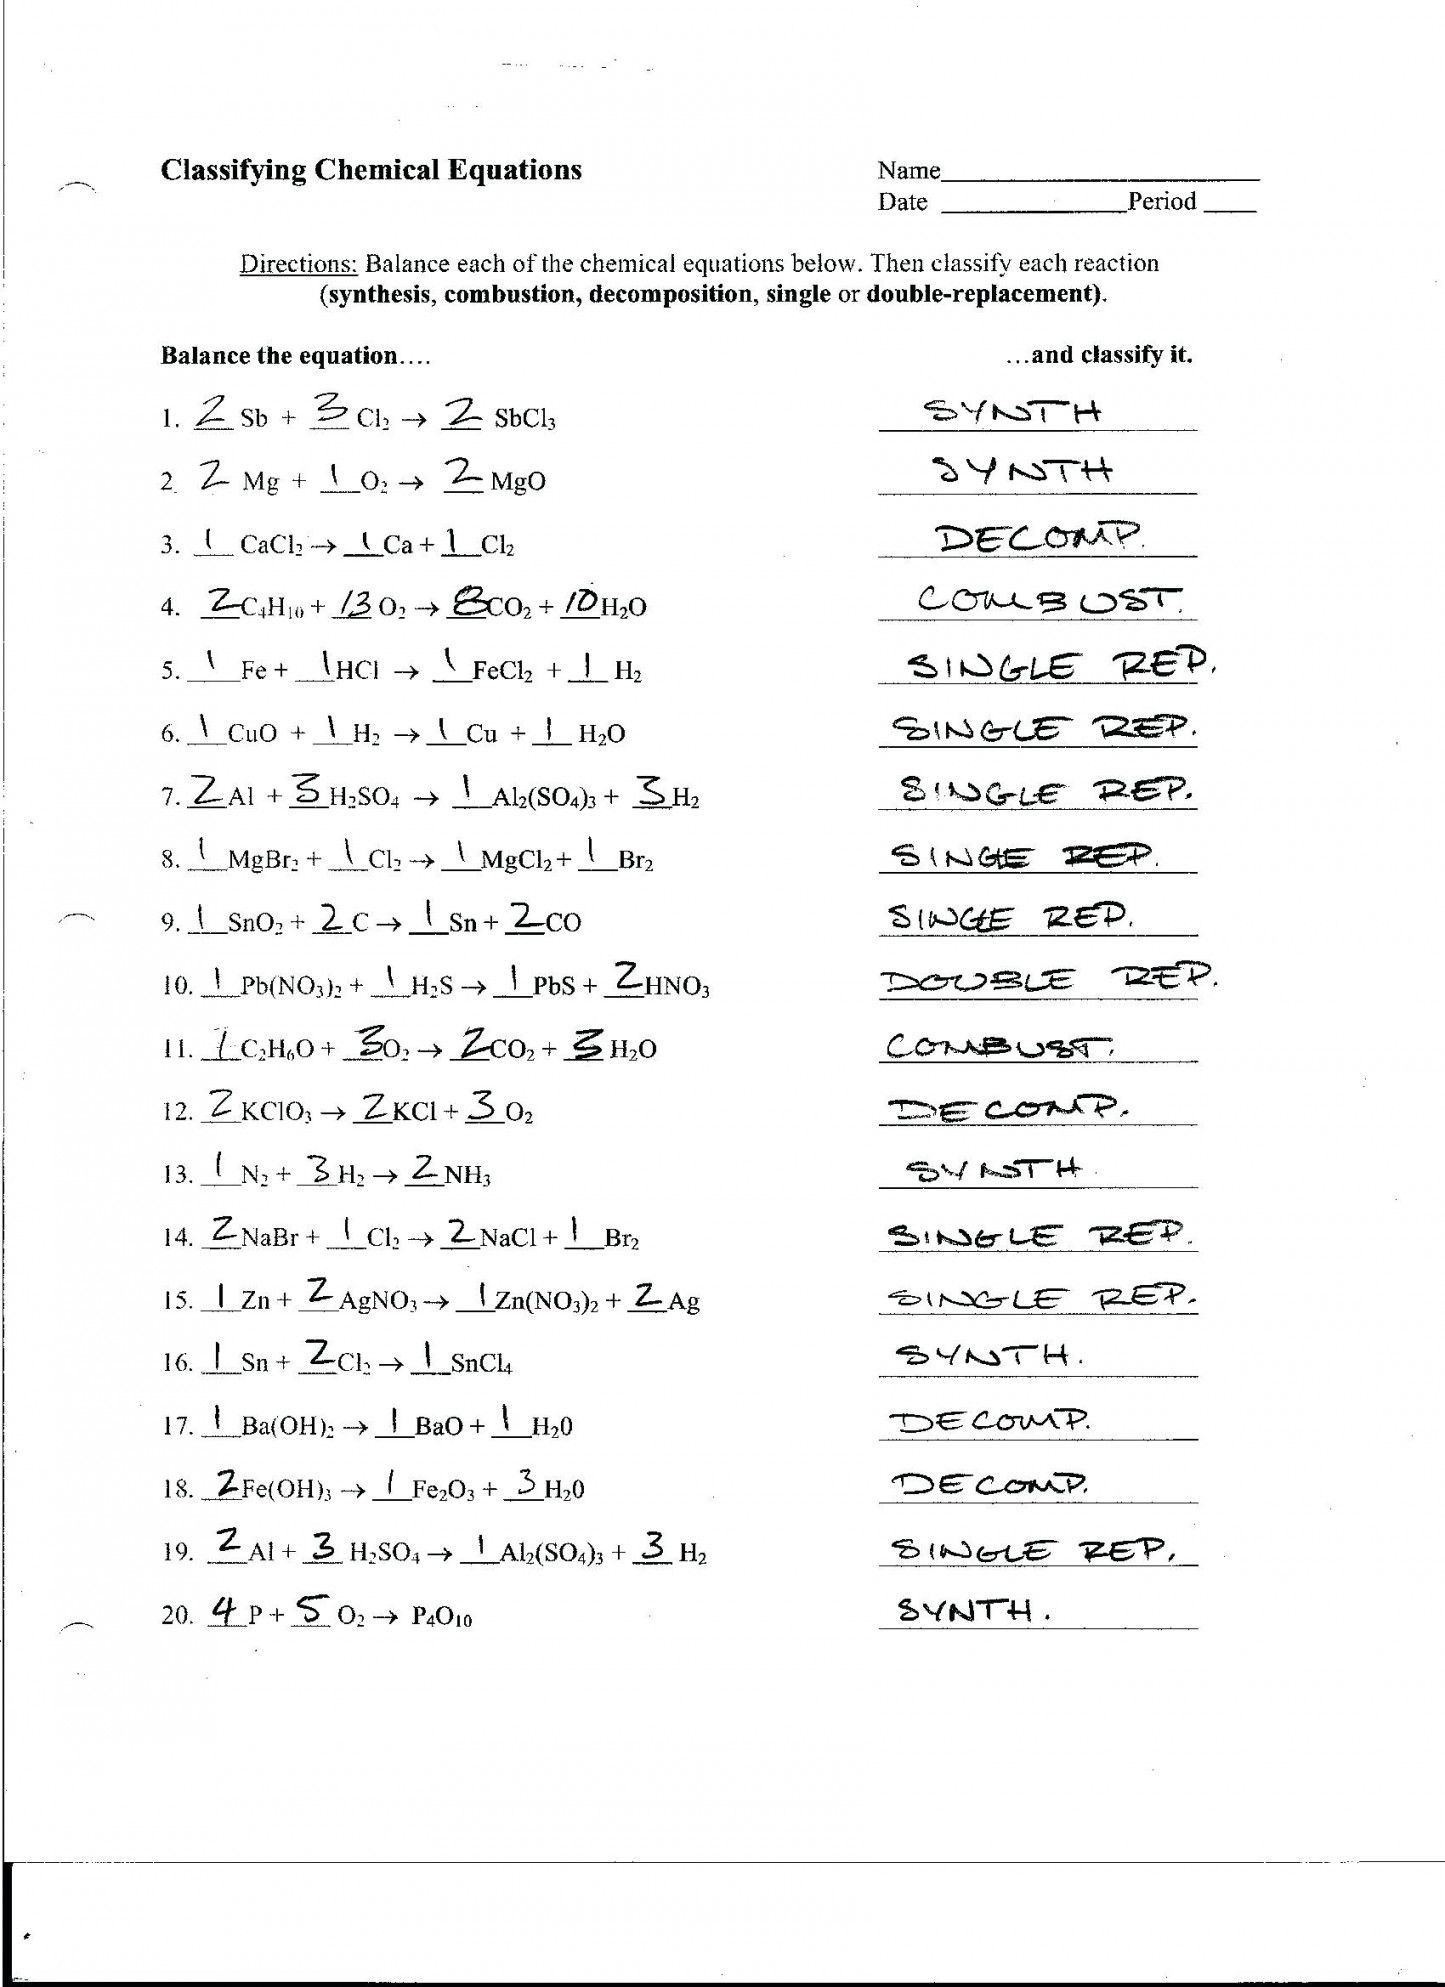 Classifying Chemical Equations Name____
Date ____Period ____
Directions: Balance each of the chemical equations below. Then classify each reaction
(synthesis, combustion, decomposition, single or double-replacement).
Balance the equation…. …and classify it.
1. 2 Sb + 3 Cl₂ → 2 SbCl₃ SYNTH
2. 2 Mg + 1 O₂ → 2 MgO SYNTH
3. 1 CaCl₂ → 1 Ca + 1 Cl₂ DECOMP.
4. 2 C₄H₁₀ + 13 O₂ → 8 CO₂ + 10 H₂O COMBUST.
5. 1 Fe + 1 HCl → 1 FeCl₂ + 1 H₂ SINGLE REP.
6. 1 CuO + 1 H₂ → 1 Cu + 1 H₂O SINGLE REP.
7. 2 Al + 3 H₂SO₄ → 1 Al₂(SO₄)₃ + 3 H₂ SINGLE REP.
8. 1 MgBr₂ + 1 Cl₂ → 1 MgCl₂ + 1 Br₂ SINGLE REP.
9. 1 SnO₂ + 2 C → 1 Sn + 2 CO SINGLE REP.
10. 1 Pb(NO₃)₂ + 1 H₂S → 1 PbS + 2 HNO₃ DOUBLE REP.
11. 1 C₂H₆O + 3 O₂ → 2 CO₂ + 3 H₂O COMBUST.
12. 2 KClO₃ → 2 KCl + 3 O₂ DECOMP.
13. 1 N₂ + 3 H₂ → 2 NH₃ SYNTH.
14. 2 NaBr + 1 Cl₂ → 2 NaCl + 1 Br₂ SINGLE REP.
15. 1 Zn + 2 AgNO₃ → 1 Zn(NO₃)₂ + 2 Ag SINGLE REP.
16. 1 Sn + 2 Cl₂ → 1 SnCl₄ SYNTH.
17. 1 Ba(OH)₂ → 1 BaO + 1 H₂0 DECOMP.
18. 2 Fe(OH)₃ → 1 Fe₂O₃ + 3 H₂0 DECOMP.
19. 2 Al + 3 H₂SO₄ → 1 Al₂(SO₄)₃ + 3 H₂ SINGLE REP.
20. 4 P + 5 O₂ → P₄O₁₀ SYNTH.